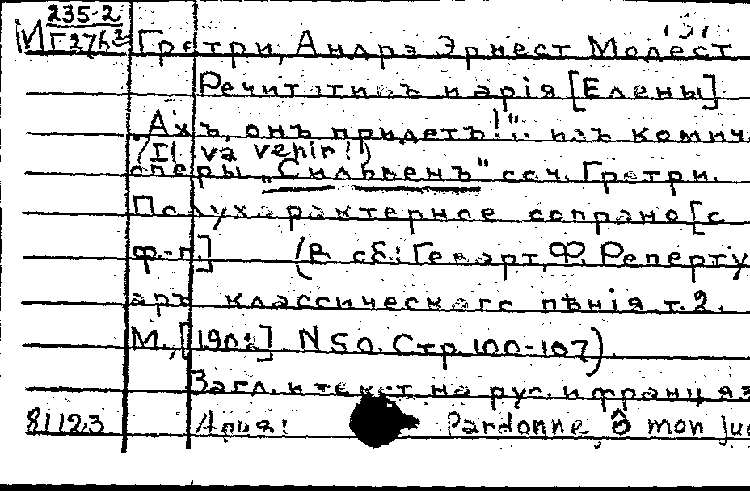 235-2
И Г276²
Гретри, Андрэ Эрнест Модест
Речитативъ и арія [Елены]
„Ахъ, онъ придетъ!".. изъ комич.
(Il va venir!)
оперы „Сильвенъ" соч. Гретри.
Полухарактерное сопрано [с
ф.-п.] (В сб.: Геварт, Ф. Реперту
аръ классическаго пѣнія т. 2.
М., N 50. Стр. 100-107).
Загл. и текст на рус. и франц яз
81123 Ария: Pardonne, ô mon jug